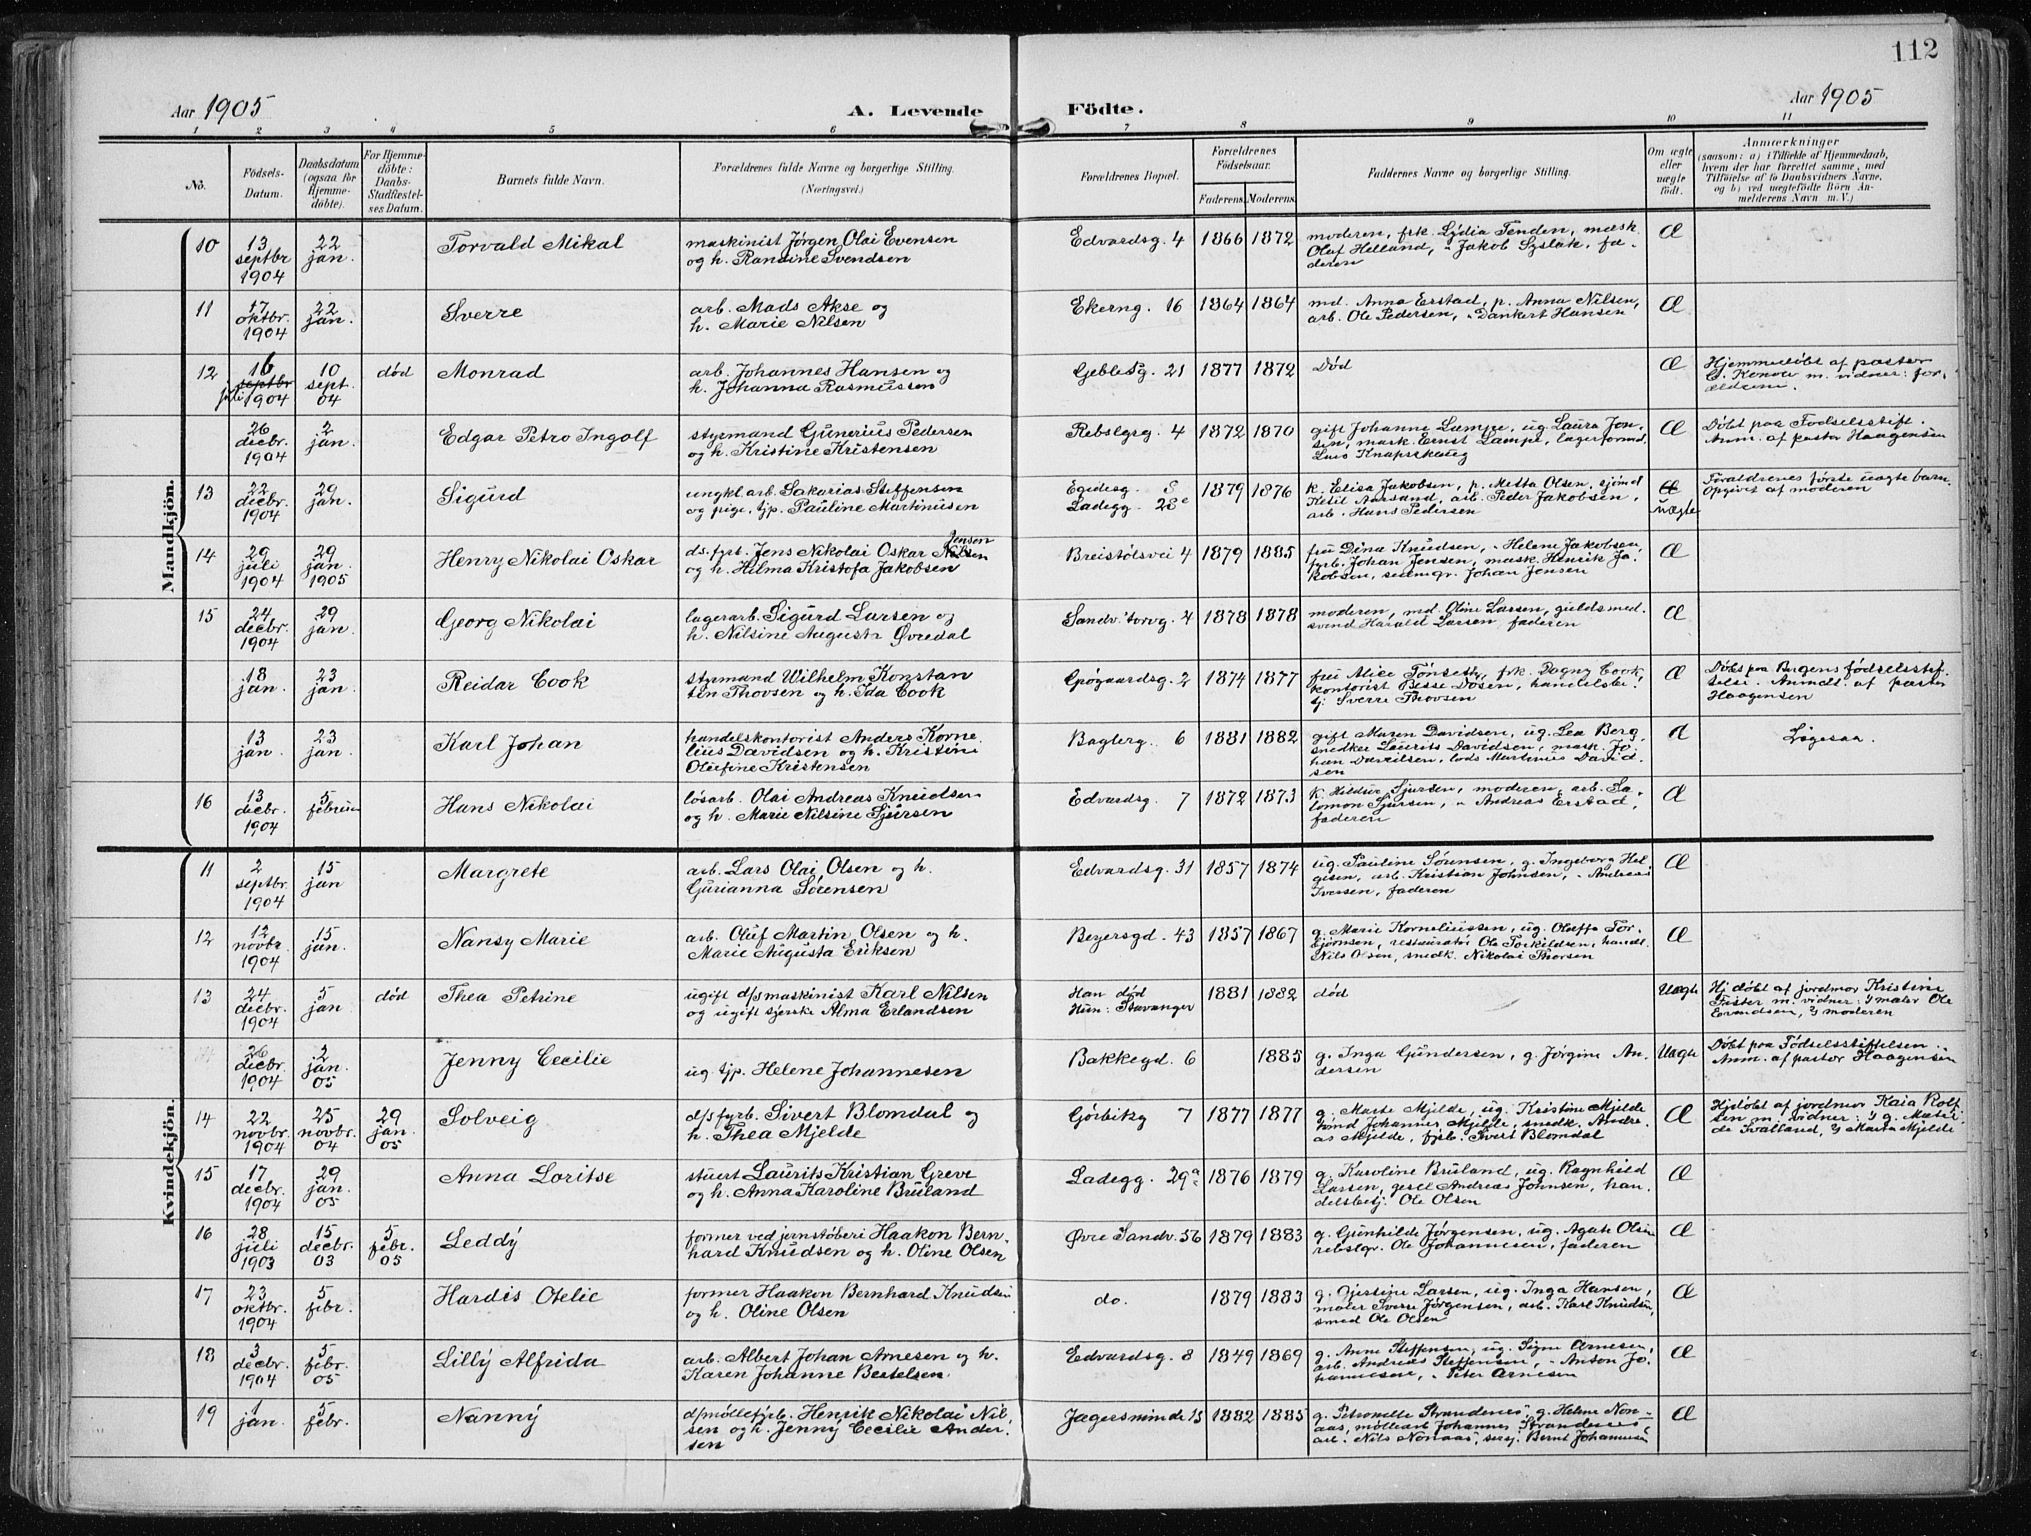 112
Aar 1905
A. Levende Födte.
Aar 1905
1 2 3 4 5 6 7 8 9 10 11
No.
Födsels-Datum.
Daabsdatum (ogsaa for Hjemme-döbte).
For Hjemme-döbte: Daabs-Stadfæstel-ses Datum.
Barnets fulde Navn.
Forældrenes fulde Navne og borgerlige Stilling. (Næringsvei.)
Forældrenes Bopæl.
Forældrenes Födselsaar.
Faderens. Moderens.
Faddernes Navne og borgerlige Stilling.
Om ægte eller uægte födt.
Anmærkninger
(saasom: a) i Tilfælde af Hjemmedaab, hvem der har forrettet samme, med Tilföielse af to Daabsvidners Navne, og b) ved uægtefödte Börn An-melderens Navn m. V.)
Mandkjön.
10 13 septbr 1904 22 jan. Torvald Mikal maskinist Jørgen Olai Evensen
og h. Randine Svendsen Edvardsg. 4 1866 1872 moderen, frk. Lydia Tenden, mask.
Olaf Helland, " Jakob Syslak, fa-
deren Æ
11 17 oktbr. 1904 22 jan. Sverre arb. Mads Akse og
h. Marie Nilsen Ekerng. 16 1864 1864 md. Anna Erstad, p. Anna Nilsen,
arb. Ole Pedersen, " Dankert Hansen Æ
12 16 septbr juli 1904 10 sept. 04 død Monrad arb. Johannes Hansen og
h. Johanna Rasmussen Geblesg. 21 1877 1872 Død Æ Hjemmedøbt af pastor
m. vidner: for-
ældrene.
26 decbr. 1904 2 jan. Edgar Petro Ingolf styrmand Gunerius Pedersen
og h. Kristine Kristensen Rebslgrg. 4 1872 1870 gift Johanne Lampe, ug. Laura Jon-
sen, mask. Ernst Lampe, lagerformd.
Lars Knapskaug Æ Døbt paa Fødselsstift.
Anm. af pastor Haagensen
13 22 decbr. 1904 29 jan. Sigurd ungkl. arb. Sakarias Steffensen
og pige, tjp. Pauline Martinusen Egedesg. 8
Ladegg. 28 c 1879 1876 k. Elisa Jakobsen, p. Metta Olsen, sjömd
Ketil Aarsand, arb. Peder Jakobsen,
arb. Hans Pedersen Æ uægte Forældrenes første uægte barn.
Opgivet af moderen
14 29 juli 1904 29 jan. 1905 Henry Nikolai Oskar ds. fyrb. Jens Nikolai Oskar Nilsen Jensen
og h. Hilma Kristofa Jakobsen Breistølsvei 4 1879 1885 fru Dina Knudsen, " Helene Jakobsen
fyrb. Johan Jensen, mask. Henrik Ja-
kobsen, Johan Jensen Æ
15 24 decbr. 1904 29 jan. Georg Nikolai lagerarb. Sigurd Larsen og
h. Nilsine Augusta Øvredal Sandv. torvg. 4 1878 1878 moderen, md. Oline Larsen, guldsmed-
svend Harald Larsen, faderen Æ
18 jan. 23 jan. Reidar Cook styrmand Wilhelm Konstan
tin Thovsen og h. Ida Cook 2 1874 1877 fru Alice Tönseth, frk. Dagny Cook,
kontorist Døsen, handelsbe-
tj. Sverre Thovsen Æ Døbt paa Bergens fødselsstif-
telse. Anmdt. af pastor
Haagensen
13 jan. 23 jan. Karl Johan handelskontorist Anders Korne
lius Davidsen og h. Kristine
Olufine Kristensen Baglerg. 6 1881 1882 gift Maren Davidsen, ug. Lea Berg,
snedker Laurits Davidsen, mask. Jo-
han Davidsen, lods Martinus David
sen Æ Ligesaa.
16 13 decbr. 1904 5 februar Hans Nikolai løsarb. Olai Andreas Knudsen
og h. Marie Nilsine Sjursen Edvardsg. 7 1872 1873 k. Hildur Sjursen, moderen, arb. Sa-
lomon Sjursen, " Andreas Erstad,
faderen Æ
Kvindekjön.
11 2 septbr. 1904 15 jan Margrete arb. Lars Olai Olsen og h.
Gurianna Sørensen Edvardsg. 31 1857 1874 ug. Pauline Sørensen, g. Ingeborg Hel-
gesen, arb. Kristian Johnsen, " Andreas
Iversen, faderen Æ
12 12 novbr. 1904 15 jan. Nansy Marie arb. Oluf Martin Olsen og h.
Marie Augusta Eriksen Beyersgd. 43 1857 1867 g. Marie Korneliussen, ug. Oleffa Tor-
björnsen, restauratør Ole Torkildsen, handl.
Nils Olsen, snedk. Nikolai Thorsen Æ
13 24 decbr. 1904 5 jan død Thea Petrine ugift d/s maskinist Karl Nilsen
og ugift syerske Alma Erlandsen Han død
Hun: Stavanger 1881 1882 død Uægte Hj. døbt af jordmor Kristine
Faster m. vidner: 1/ maler Ole
Evendsen, 2/ moderen
26 decbr. 1904 2 jan. 05 Jenny Cecilie ug. tjp. Helene Johannesen Bakkegd. 6 1885 g. Inga Gundersen, g. Jørgine An-
dersen Uægte Døbt paa Fødselsstiftelsen.
Anm. af pastor Haagensen
14 22 novbr. 1904 25 novbr. 04 29 jan. 05 Solveig d/s fyrb. Sivert Blomdal og
h. Thea Mjelde Gørbitzg 7 1877 1877 g. Marte Mjelde, ug. Kristine Mjelde
Johannes Mjelde, snedk. Andre-
as Mjelde, fyrb. Sivert Blomdal Æ Hjdøbt af jordmor Kaia Rolf
sen m. vidner: 1/ g. Matil
de Svalland, 2/ Marta Mjelde
15 17 decbr. 1904 29 jan. 05 Anna Loritse stuert Laurits Kristian Greve
og h. Anna Karoline Bruland Ladegg. 29 a 1876 1879 g. Karoline Bruland, ug. Ragnhild
Larsen, gesel Andreas Johnsen, han
delsbetj. Ole Olsen Æ
16 28 juli 1903 15 decbr. 03 5 febr. 05 Leddy former ved jernstøberi Haakon Bern-
hard Knudsen og h. Oline Olsen Øvre Sandv. 56 1879 1883 g. Gunhilde Jørgensen, ug. Agate Olsen
rebslgr. Ole Johannesen, faderen Æ
17 23 oktbr. 1904 5 febr. Hardis Otelie former Haakon Bernhard Knudsen
og h. Oline Olsen do. 1879 1883 g. Gjertine Larsen, ug. Inga Hansen,
maler Sverre Jørgensen, arb. Karl Knudsen,
smed Ole Olsen Æ
18 3 decbr. 1904 5 febr. 05 Lilly Alfrida arb. Albert Johan Arnesen og h.
Karen Johanne Bertelsen Edvardsg. 8 1849 1869 g. Anne Steffensen, ug. Signe Arnesen,
arb. Andreas Steffensen, " Anton Jo-
hannesen, " Peter Arnesen Æ
19 1 jan. 5 febr. Nanny d/s møllefyrb. Henrik Nikolai Nil-
sen og h. Jenny Cecilie Ander-
sen Jægersminde 15 1882 1885 g. Petronelle Strandenes, g. Helene Non-
aas, møllearb Johannes Strandenes
arb. Nils Nonaas, Bernt Johannesen Æ